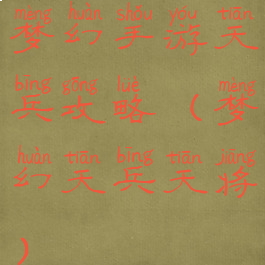 mèng huàn shǒu yóu tiān
梦幻手游天
bīng gōng lüè mèng
兵攻略（梦
huàn tiān bīng tiān jiàng
幻天兵天将
）